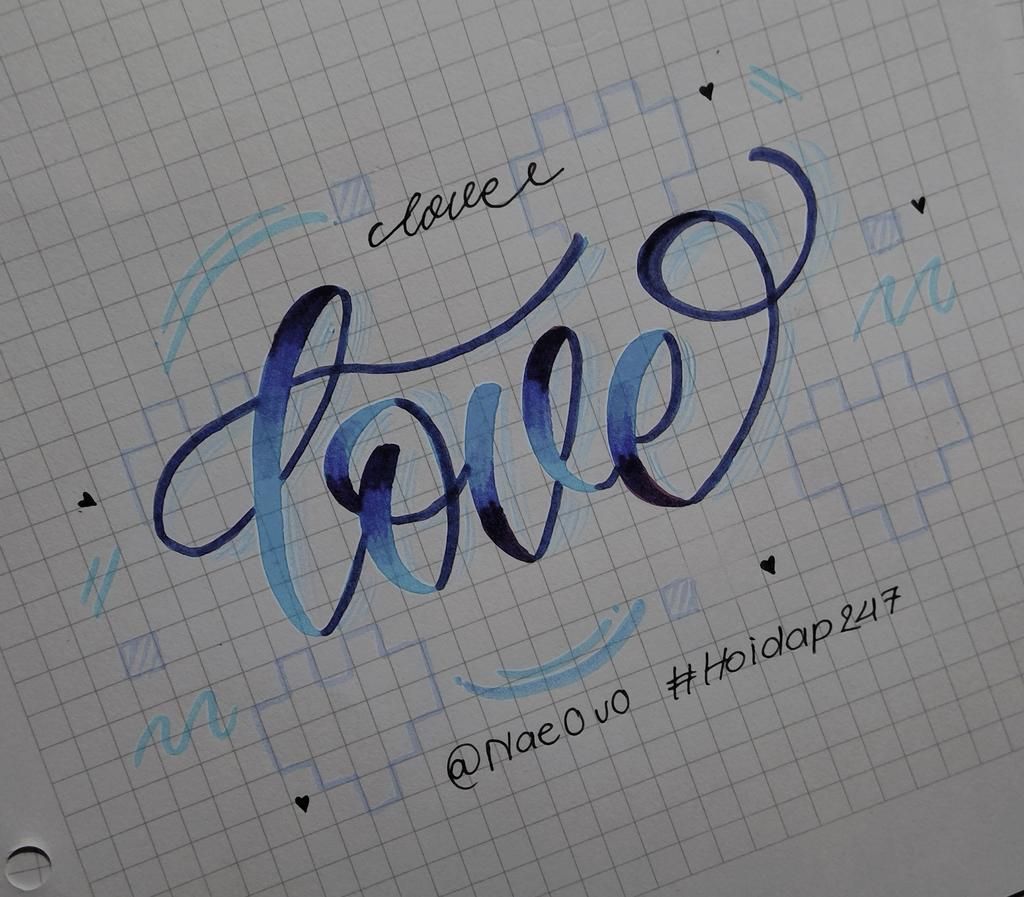 clover
love
@NaeOvO #Hoidap247